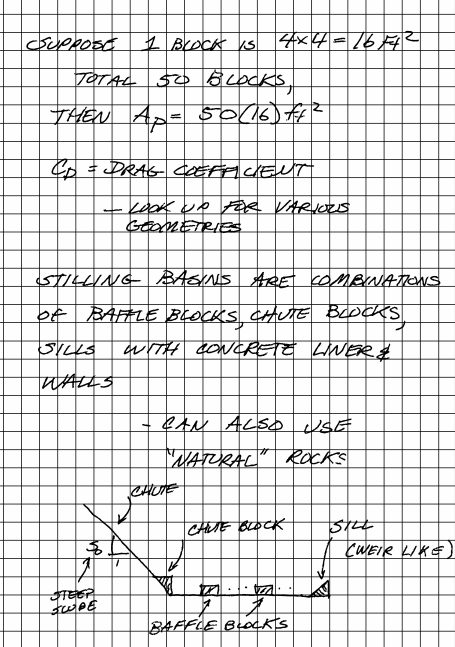 SUPPOSE 1 BLOCK IS 4x4 = 16 Ft²
TOTAL 50 BLOCKS,
THEN Ap = 50(16) ft²
CD = DRAG COEFFICIENT
- LOOK UP FOR VARIOUS
GEOMETRIES
STILLING BASINS ARE COMBINATIONS
OF BAFFLE BLOCKS, CHUTE BLOCKS,
SILLS WITH CONCRETE LINER &
WALLS
- CAN ALSO USE
"NATURAL" ROCKS
CHUTE
CHUTE BLOCK
SILL
(WEIR LIKE)
So
1
STEEP
SLOPE
BAFFLE BLOCKS